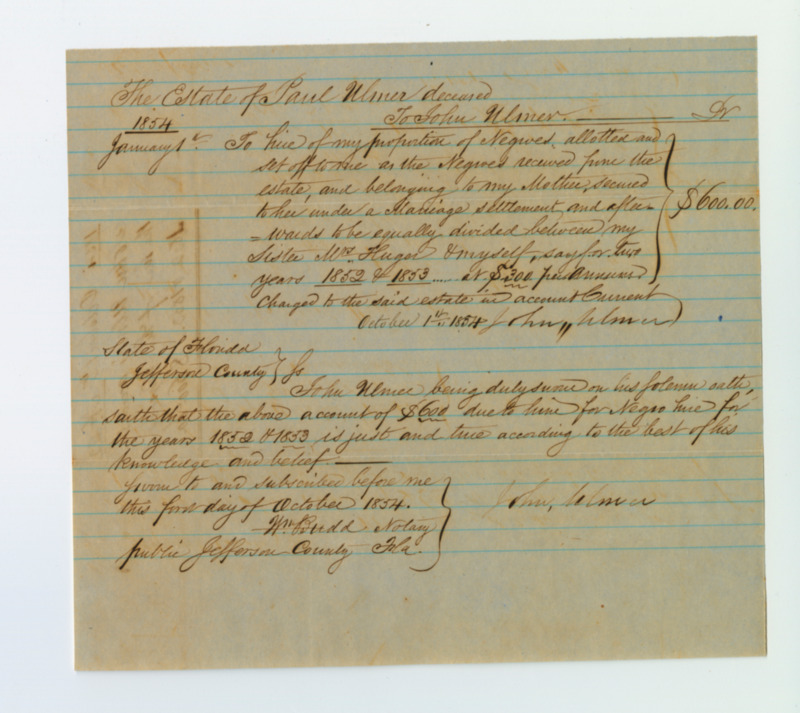 The Estate of Paul Ulmer deceased
To John Ulmer. Dr
1854
January 1st. To hire of my proportion of Negroes, allotted and
set off to me as the Negroes received from the
estate, and belonging to my Mother, secured
to her under a Marriage settlement, and after-
=wards to be equally divided between my
Sister Mrs. Huger & myself, say for two
years 1852 & 1853 .... at $300 per Annum
Charged to the said estate in account Current
$600.00.
October 1st. 1854 John,, Ulmer
State of Florida
Jefferson County } Ss
John Ulmer being duly sworn on his solemn oath,
saith that the above account of $600 due to him for Negro hire for
the years 1852 & 1853 is just and true according to the best of his
knowledge and belief.
Sworn to and subscribed before me
this first day of October 1854.
John, Ulmer
Wm Budd Notary
public Jefferson County Fla.